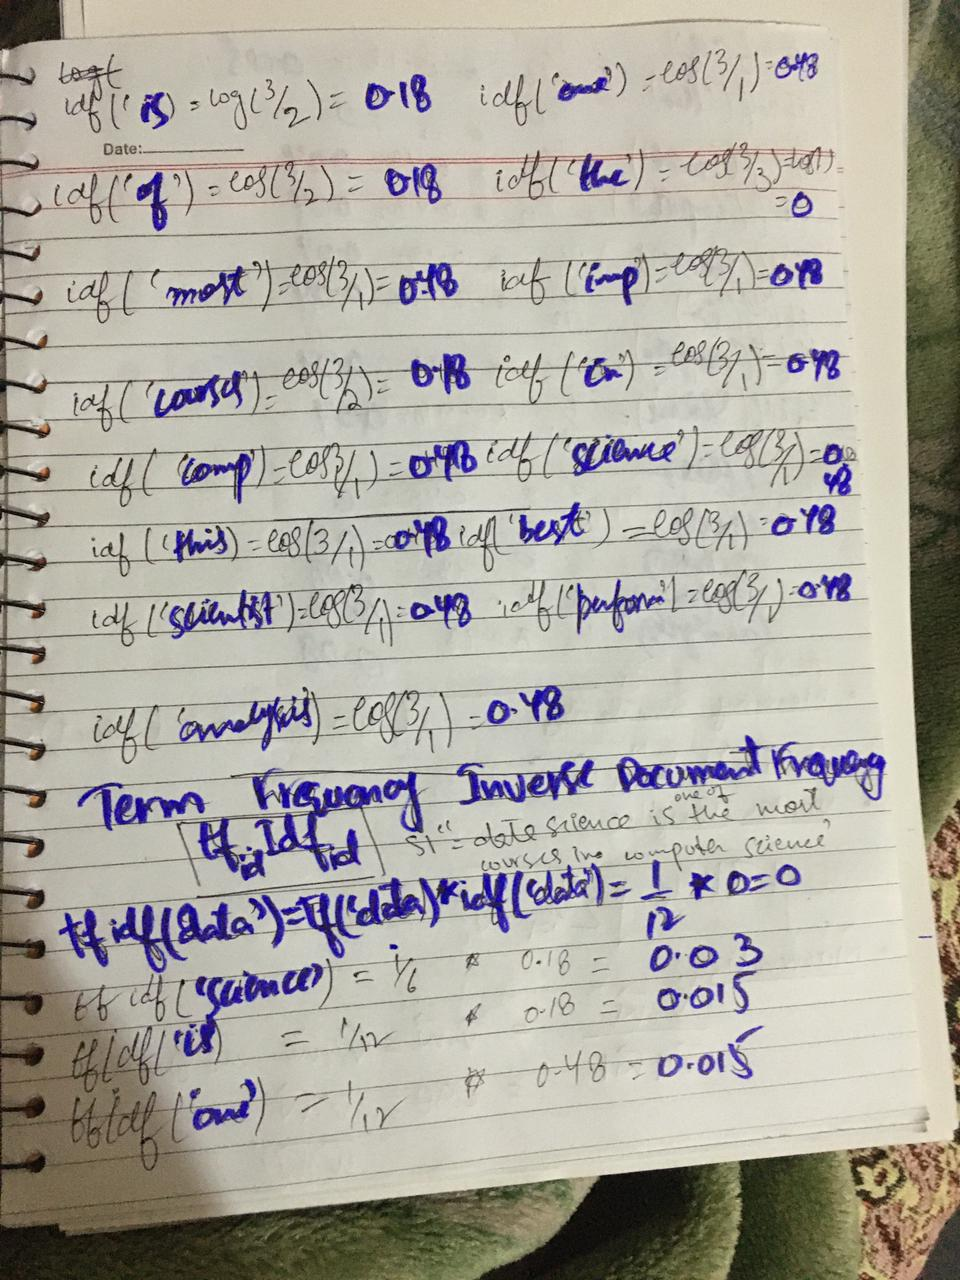 log(
idf('is) = log(3/2) = 0.18 idf('one') = log(3/1) = 0.48
Date:
idf('of') = log(3/2) = 0.18 idf('the') = log(3/3) = log1)
= 0
idf('most') = log(3/1) = 0.48 idf('imp) = log(3/1) = 0.48
idf('courses) = log(3/2) = 0.18 idf('in) = log(3/1) = 0.48
idf('comp) = log3/1) = 0.48 idf('science') = log(3/1) = 0.
48
idf('this) = log(3/1) = 0.48 idf('best') = log(3/1) = 0.48
idf('scientist') = log(3/1) = 0.48 idf('perform') = log(3/1) = 0.48
idf('analysis) = log(3/1) = 0.48
Term Frequency Inverse Document Frequency
tf id Idf id
one of
S1" = data science is the most
courses in computer science'
tf idf(data') = tf('data) * idf('data') = 1/12 * 0 = 0
tf idf('science) = 1/6 * 0.18 = 0.03
tf idf('is) = 1/12 * 0.18 = 0.015
tf idf('one') = 1/12 * 0.48 = 0.015